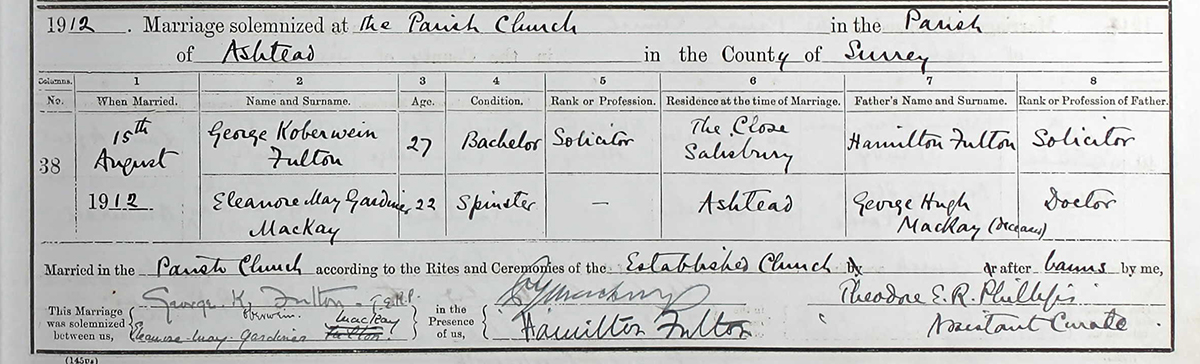 1912. Marriage solemnized at the Parish Church in the Parish
of Ashtead in the County of Surrey
Columns. 1 2 3 4 5 6 7 8
No. When Married. Name and Surname. Age. Condition. Rank or Profession. Residence at the time of Marriage. Father's Name and Surname. Rank or Profession of Father.
38
15th
August
1912
George Koberwein
Fulton
27 Bachelor Solicitor
The Close
Salisbury
Hamilton Fulton Solicitor
Eleanore May Gardiner
MacKay
22 Spinster — Ashtead
George Hugh
MacKay (deceased)
Doctor
Married in the Parish Church according to the Rites and Ceremonies of the Established Church by or after banns by me,
This Marriage
was solemnized
between us,
George K. Fulton T.E.R.P.
oberwein. MacKay
Eleanore May Gardiner Fulton
in the
Presence
of us,
Hamilton Fulton
Theodore E. R. Phillips
Assistant Curate
(145